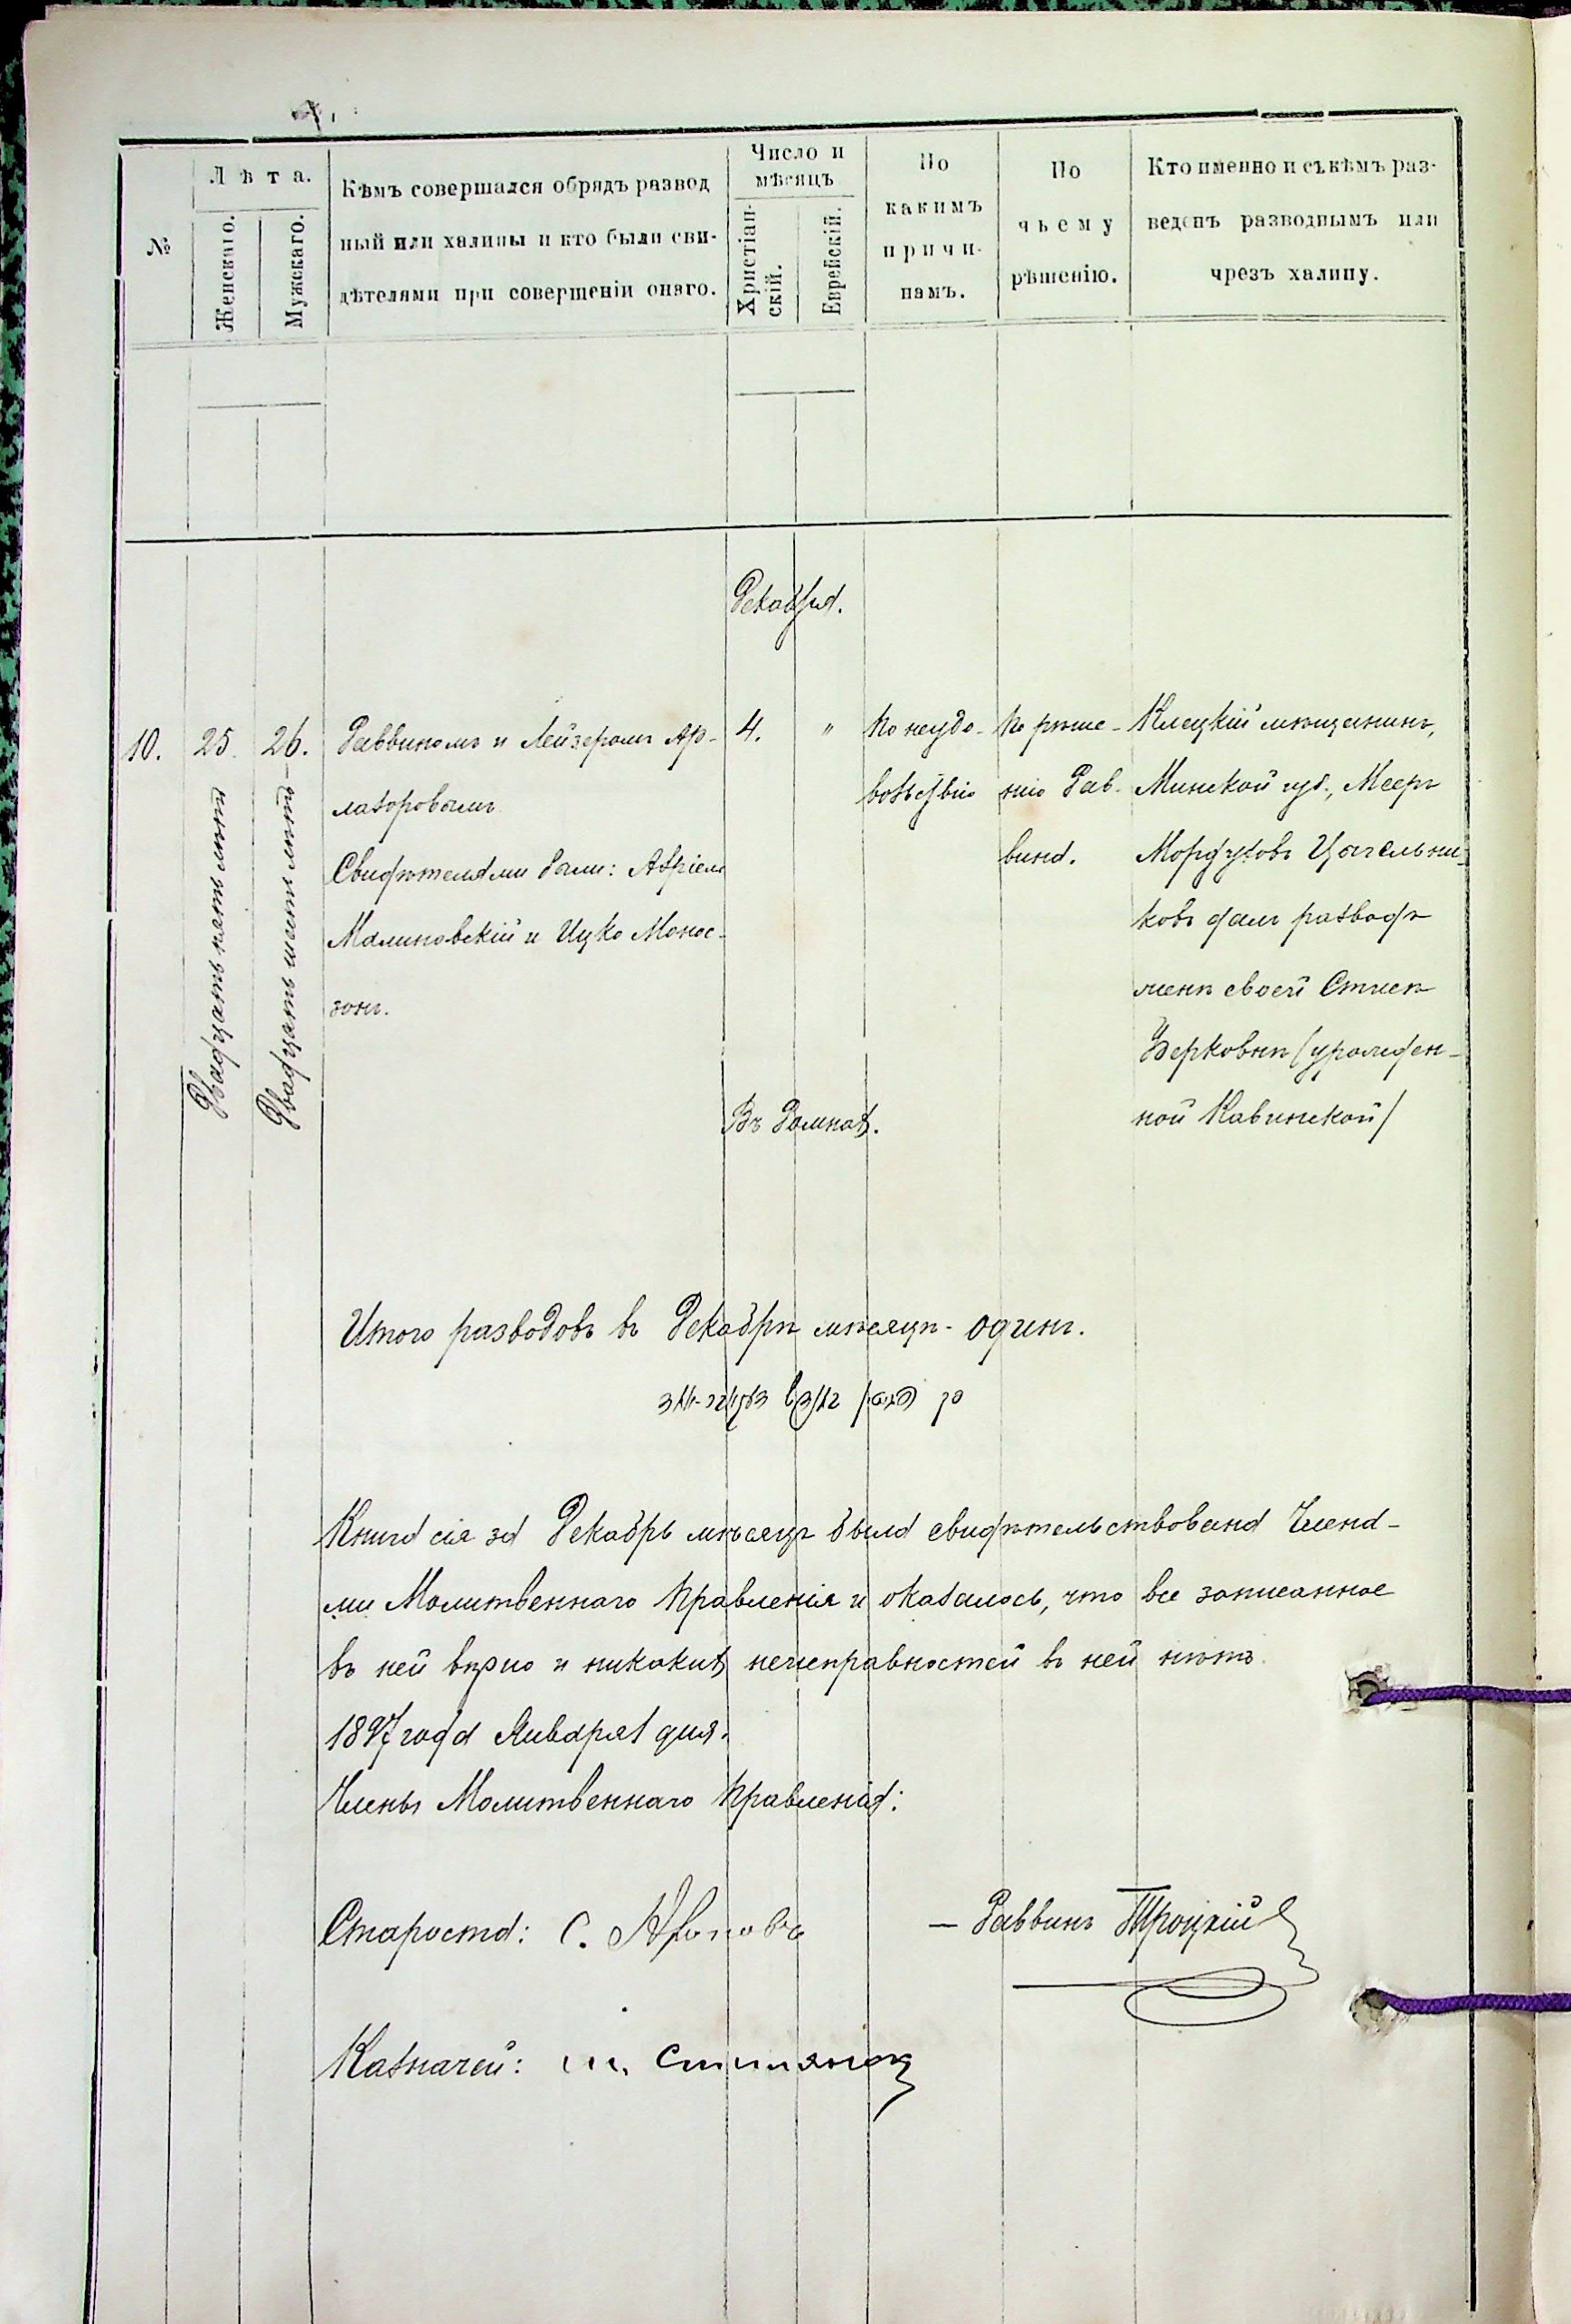 №
Лѣта.
Женскаго.
Мужскаго.
Кѣмъ совершался обрядъ развод
ный или халицы и кто были сви-
дѣтелями при совершеніи онаго.
Число и
мѣсяцъ
Христіан-
скій.
Еврейскій.
По
какимъ
причи-
намъ.
По
чьему
рѣшенію.
Кто именно и съ кѣмъ раз-
веденъ разводнымъ или
чрезъ халицу.
Декабря.
10.
25.
Двадцать пять лѣтъ
26.
Двадцать шесть лѣтъ
Раввиномъ и Лейзеромъ Ар-
лазоровымъ
Свидѣтелями были: Азріель
Малиновскій и Ицко Монос-
зонъ.
4.
"
Въ Ромнах.
По неудо-
вольствію
По рѣше-
нію Рав-
вина.
Клецкій мѣщанинъ,
Минской губ., Мееръ
Мордуховъ Цагельни-
ковъ далъ разводъ
женѣ своей Стисѣ
Берковнѣ (урожден-
ной Кавинской)
Итого разводовъ въ Декабрѣ мѣсяцѣ - одинъ.
Книга сія за Декабрь мѣсяцъ была свидѣтельствована Члена-
ми Молитвеннаго Правленія и оказалось, что все записанное
въ ней вѣрно и никаких неисправностей въ ней нѣтъ.
1897 года Января 1 дня.
Члены Молитвеннаго Правленія:
Староста: С. Ароновъ
— Раввинъ Троцкій
Казначей: